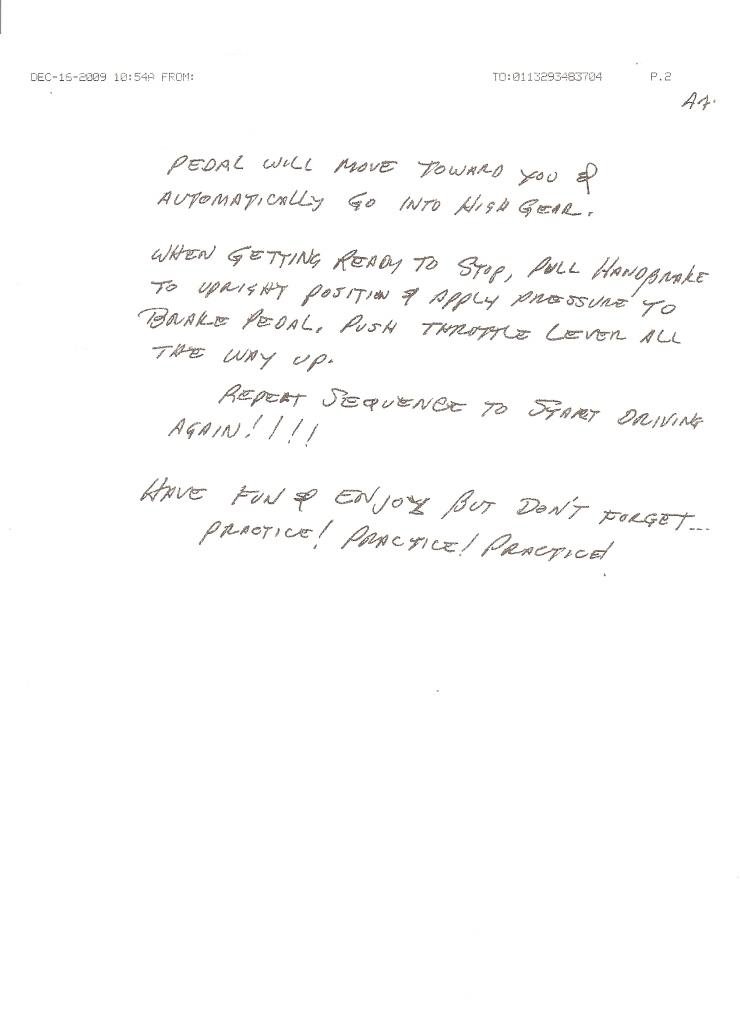 DEC-16-2009 10:54A FROM: TO:0113293483704 P.2
PEDAL WILL MOVE TOWARD YOU &
AUTOMATICALLY GO INTO HIGH GEAR.
WHEN GETTING READY TO STOP, PULL HANDBRAKE
TO UPRIGHT POSITION & APPLY PRESSURE TO
BRAKE PEDAL. PUSH THROTTLE LEVER ALL
THE WAY UP.
REPEAT SEQUENCE TO START DRIVING
AGAIN!!!!
HAVE FUN & ENJOY BUT DON'T FORGET...
PRACTICE! PRACTICE! PRACTICE!